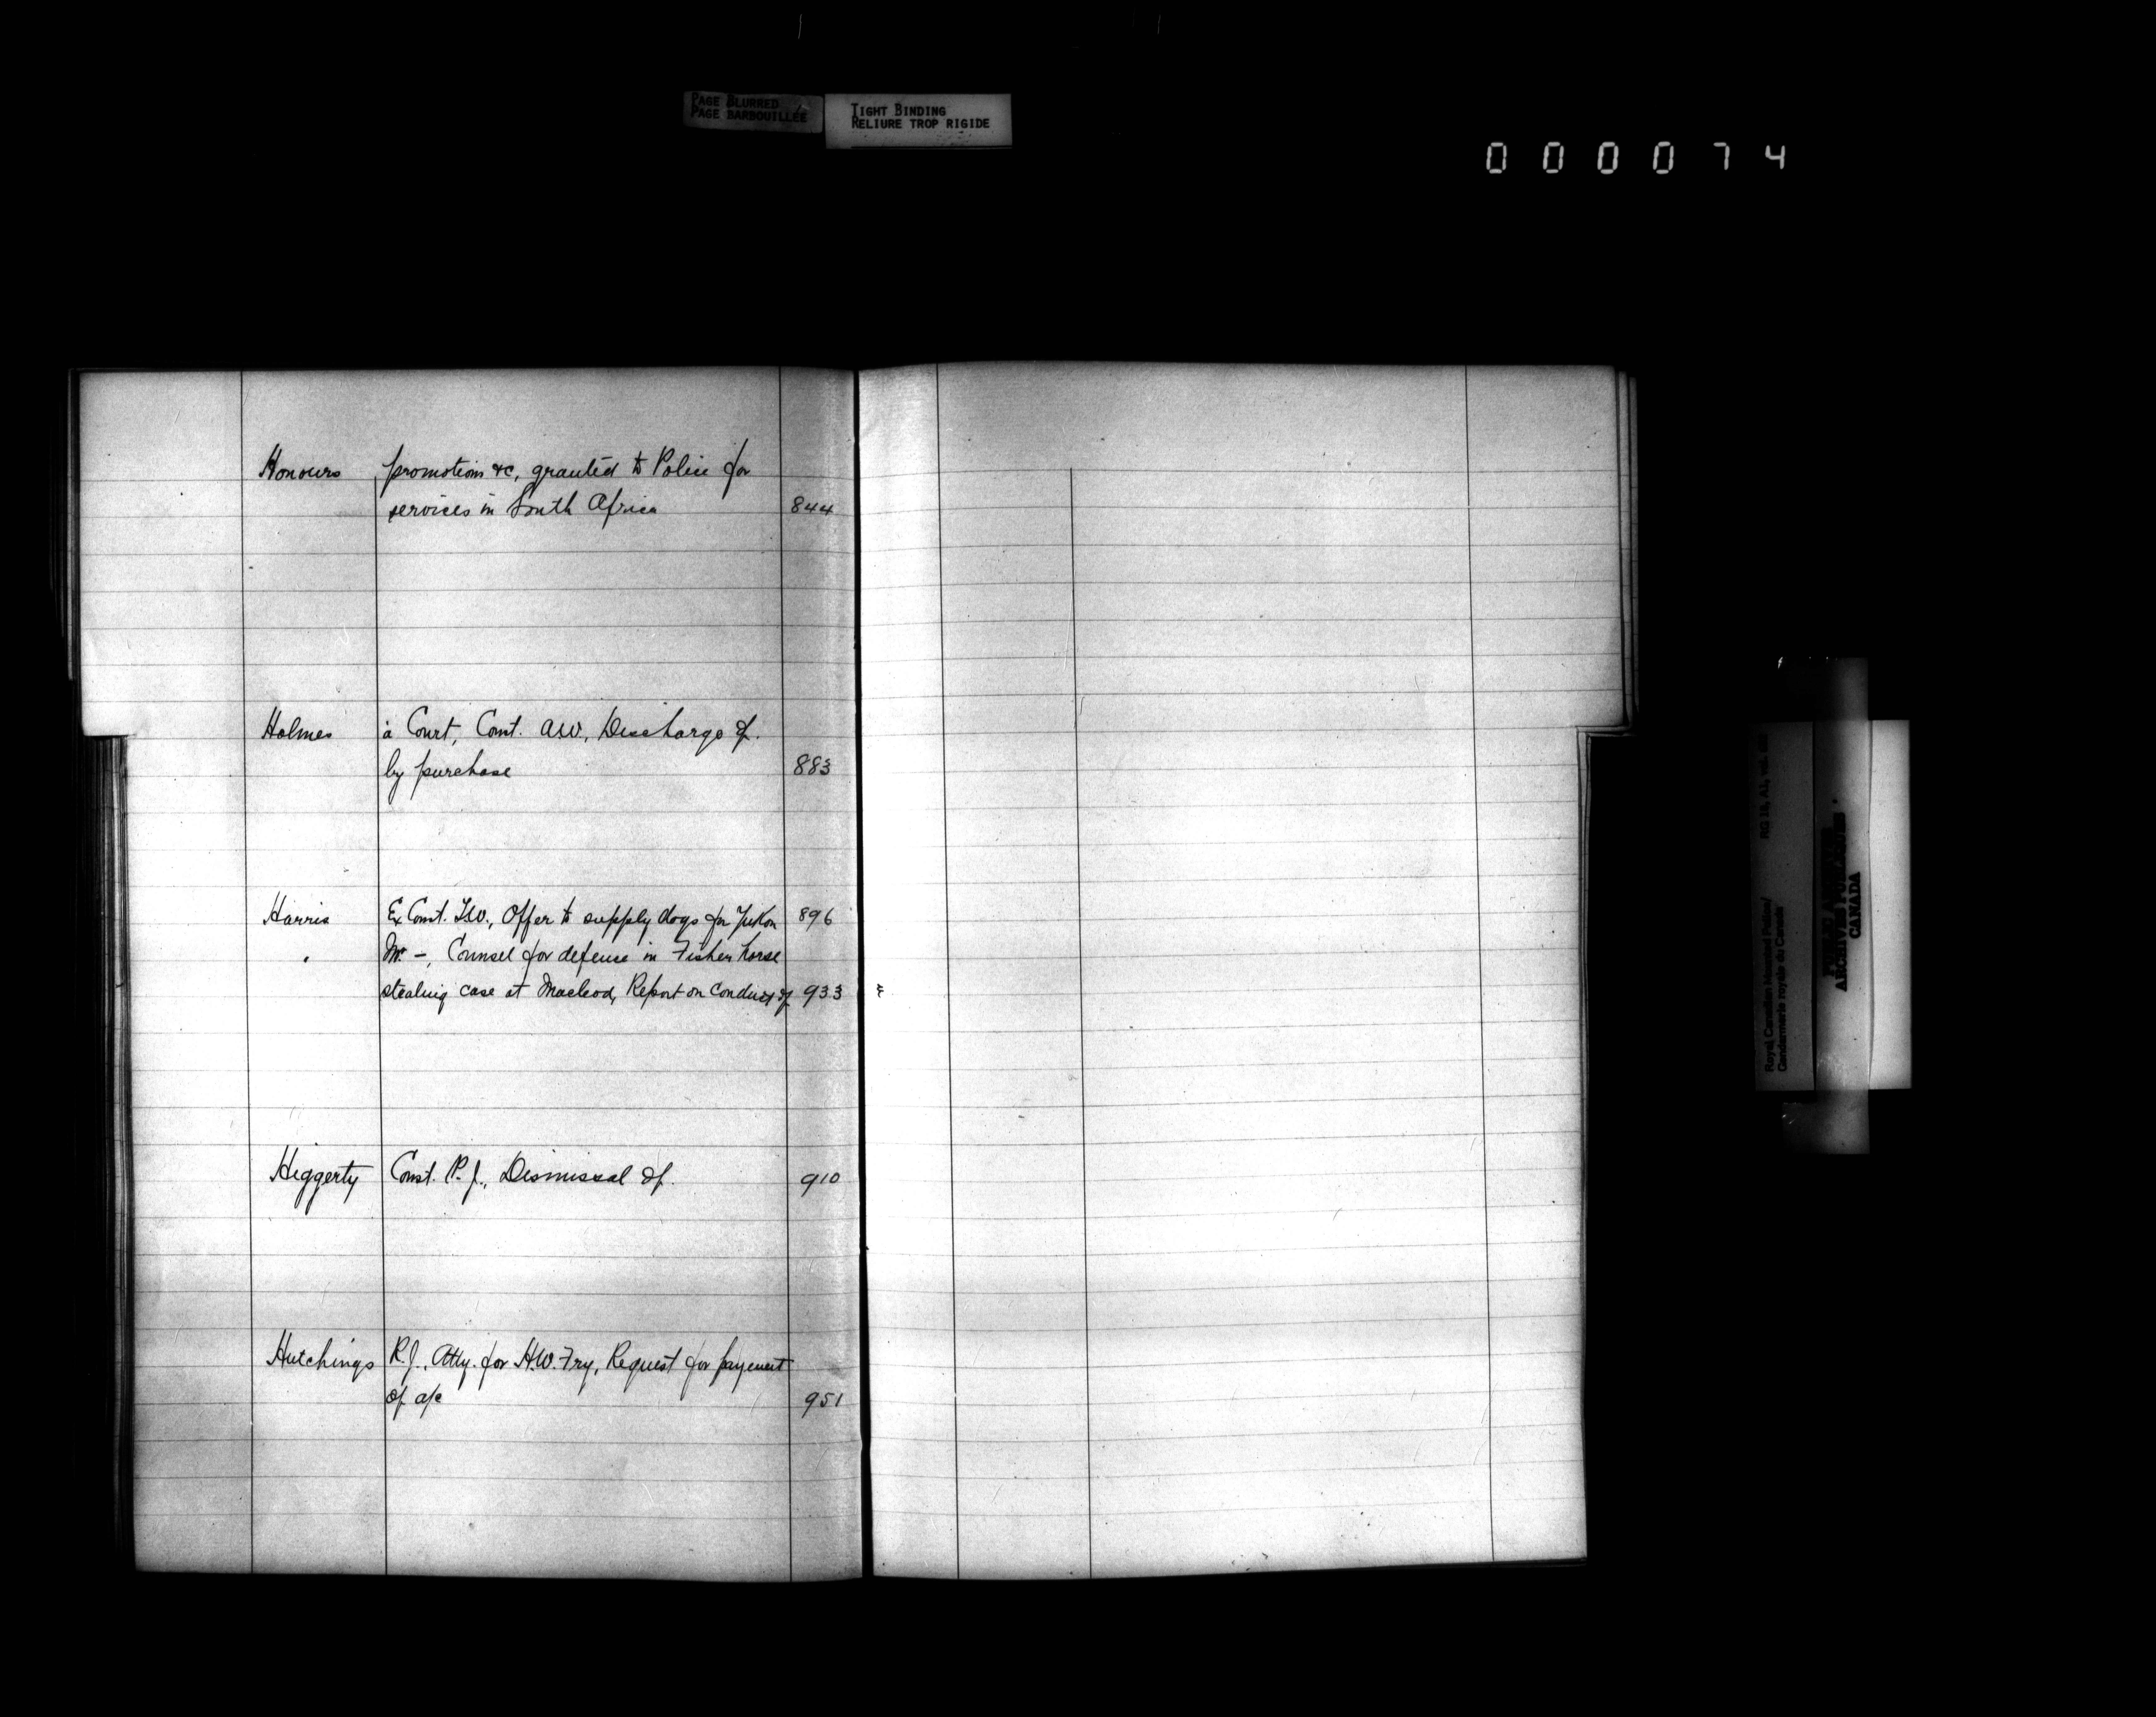 PAGE BLURRED
PAGE BARBOUILLÉE
TIGHT BINDING
RELIURE TROP RIGIDE
000074
Honours promotions &c, granted to Police for
services in South Africa 844
Holmes à Court, Const. A.W., Discharge of.
by purchase 883
Harris Ex Const. T.W., Offer to supply dogs for Yukon 896
" Mr. –, Counsel for defense in Fisher horse
stealing case at Macleod, Report on conduct of 933
Higgerty Const. P. J., Dismissal of. 910
Hutchings R. J., Atty. for H.W. Fry, Request for payment
of a/c 951
Royal Canadian Mounted Police/ RG 18, A1, vol.
Gendarmerie royale du Canada
PUBLIC ARCHIVES
ARCHIVES PUBLIQUES
CANADA